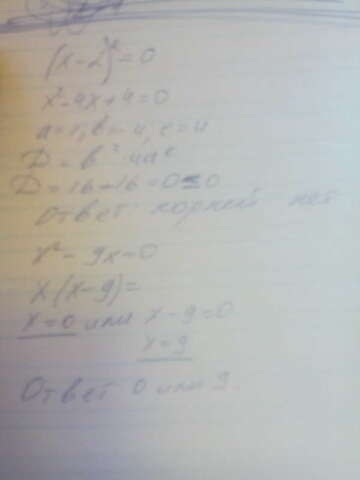 (x-2)²=0
x²-4x+4=0
a=1, b=-4, c=4
D=b²-4ac
D=16+16=0≤0
Ответ корней нет
x²-9x=0
x(x-9)=
x=0 или x-9=0
x=9
Ответ 0 или 9.